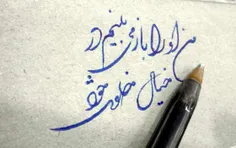 من او را باز می بینم در
خیال مخلوق خود